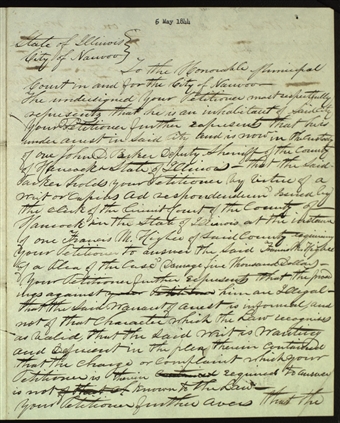 6 May 1844
State of Illinois
City of Nauvoo
To the Honorable Municipal
Court in and for the City of Nauvoo
The undersigned Your Petitioner most respectfully
represents that he is an inhabitant of said City
Your Petitioner further represents that he is
under arrest in said City and is now in the custody
of one John D. Parker Deputy Sheriff of the County
of Hancock State of Illinois that the said
Parker holds your Petitioner by virtue of a
writ or Capias ad respondendum issued by
the clerk of the Circuit Court of the County of
Hancock in the State of Illinois at the instance
of one Francis M. Higbee of said County requiring
Your Petitioner to answer the said Francis M. Higbee
of a Plea of the Case Damage five Thousand Dollars
Your Petitioner further represents that the proceed
ings against him are illegal
that the said Warrant of Arrest is informal and
not of that Character which the Law recognises
as valid, that the said writ is wanting
and deficient in the plea therein contained
that the charge or complaint which your
Petitioner is therein required to answer
is not known to the Law
Your Petitioner further avers that the